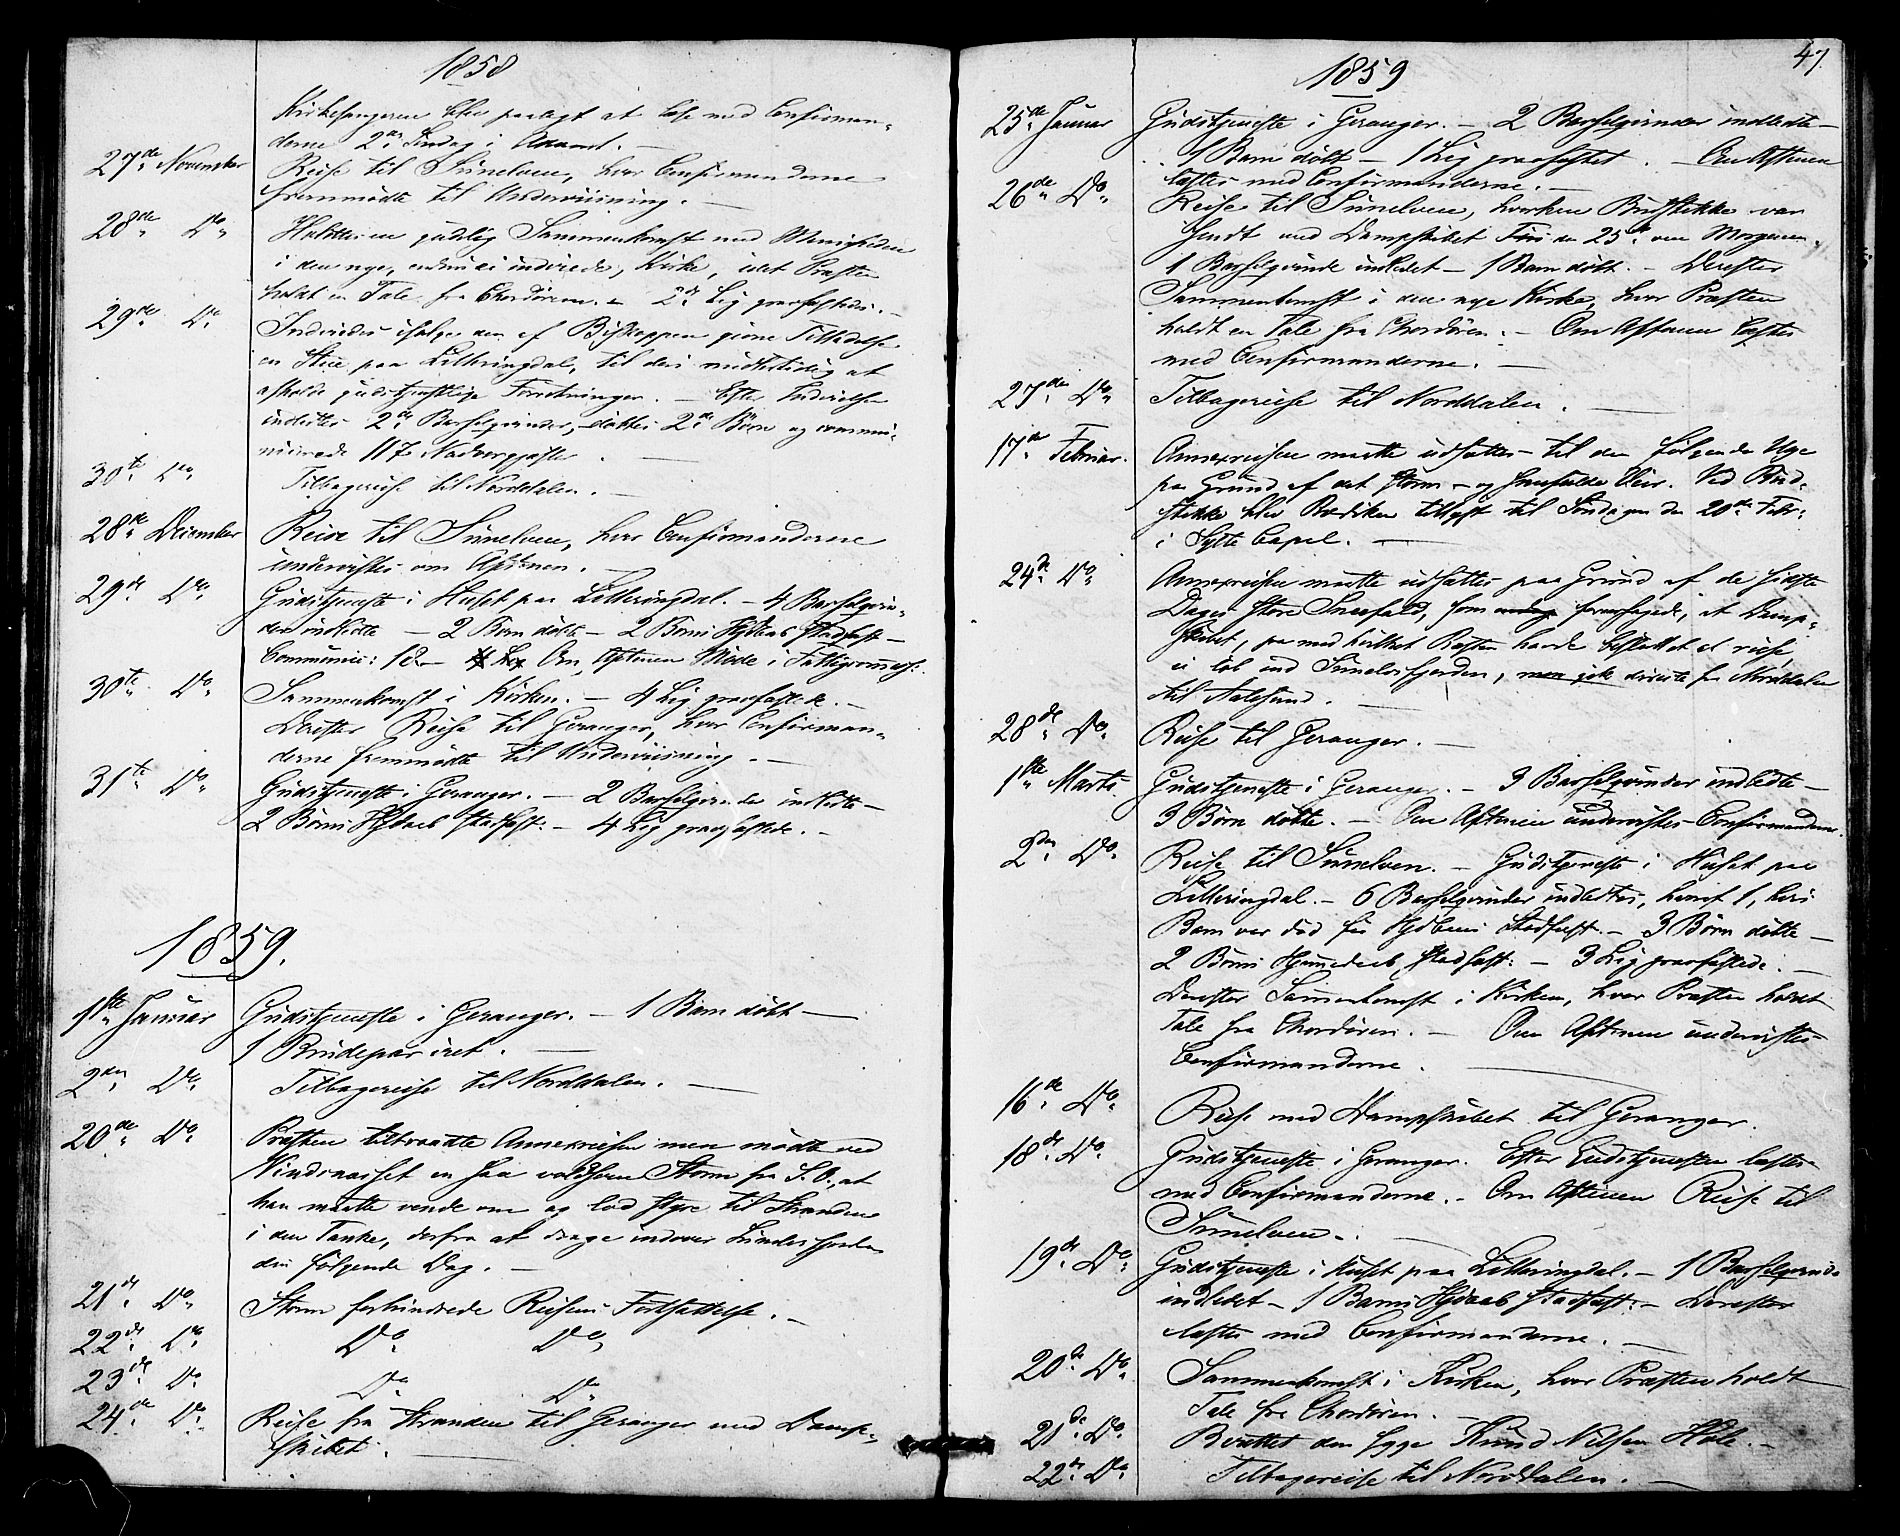 1858
Kirkesangeren blev paalagt at læse med Confirman-
derne 2den Søndag i Advent. —
27de November Reise til Sunelven, hvor Confirmanderne
fremmødte til Underviisning. —
28de Do Holdt en gudelig Sammenkomst med Menigheden
i den nye, endnu ei indviede, Kirke, idet Præsten
holdt en Tale fra Chordøren. — 2de Lig graffæstede. —
29de Do Indviedes ifølge den af Biskoppen givne Tilladelse
en Stue paa Lilleringdal, til deri midlertidig at
afholde gudstjenstlige Forretninger. — Efter Indvielsen
indledtes 2de Barselqvinder, døbtes 2de Børn og commu-
nicerede 117 Nadvergjæster. —
30te Do Tilbagereise til Norddalen. —
28de December Reise til Sunelven, hvor Confirmanderne
undervistes om Aftenen. —
29de Do Gudstjeneste i Huset paa Lilleringdal. — 4 Barselqvin-
der indledte — 2 Børn døbte — 2 Børns Hjdaab stadfæst —
Communic: 18 — Om Aftenen Møde i Fattigcomms:
30te Do Sammenkomst i Kirken. — 4 Lig graffæstede. —
Derefter Reise til Geranger, hvor Confirman-
derne fremmødte til Underviisning. —
31te Do Gudstjeneste i Geranger. — 2 Barselqvinder indledte —
2 Børns Hjdaab stadfæst: — 4 Lig graffæstede. —
1859.
1ste Januar Gudstjeneste i Geranger. — 1 Barn døbt —
1 Brudepar viet. —
2den Do Tilbagereise til Norddalen. —
20de Do Præsten tiltraadte Annexreisen men mødte ved
Vindsnæsset en saa voldsom Storm fra S.O., at
han maatte vende om og lod styre til Stranden
i den Tanke, derfra at drage indover
den følgende Dag. —
21de Do Storm forhindrede Reisens Fortsættelse. —
22de Do Do Do
23de Do Do Do
24de Do Reise fra Stranden til Geranger med Damp-
skibet. —
47.
1859
25de Januar Gudstjeneste i Geranger. — 2 Barselqvinder indledte —
1 Barn døbt — 1 Lig graffæstet. — Om Aftenen
læstes med Confirmanderne. —
26de Do Reise til Sunelven, hvorhen Budstikke var
sendt med Dampskibet den 25de om Morgenen.
1 Barselqvinde indledet — 1 Barn døbt. — Derefter
Sammenkomst i den nye Kirke, hvor Præsten
holdt en Tale fra Chordøren. — Om Aftenen læstes
med Confirmanderne. —
27de Do Tilbagereise til Norddalen. —
17de Februar. Annexreisen maatte udsættes til den følgende Uge
paa Grund af det storm- og snefulde Veir. Ved Bud-
stikke blev Prædiken tillyst til Søndagen den 20de Febr.
i Sylte Capel. —
24de Do Annexreisen maatte udsættes paa Grund af de sidste
Dages store Snefald, som foraarsagede, at Damp-
skibet, paa med hvilket Præsten havde besluttet at reise
ei løb ind Sunelvsfjorden, men gik directe fra Norddalen
til Aalesund. —
28de Do Reise til Geranger. —
1ste Marts Gudstjeneste i Geranger. — 3 Barselqvinder indledte —
3 Børn døbte. — Om Aftenen undervistes Confirmanderne.
2den Do Reise til Sunelven. — Gudstjeneste i Huset paa
Lilleringdal. — 6 Barselqvinder indledtes, hvoraf 1, hvis
Barn var død før Hjdbens Stadfæst. — 3 Børn døbte —
2 Børns Hjemedaab stadfæst: — 3 Lig graffæstede. —
Derefter Sammenkomst i Kirken, hvor Præsten holdt
Tale fra Chordøren. — Om Aftenen undervistes
Confirmanderne. —
16de Do Reise med Dampskibet til Geranger.
18de Do Gudstjeneste i Geranger. Efter Gudstjenesten læstes
med Confirmanderne. — Om Aftenen Reise til
Sunelven. —
19de Do Gudstjeneste i Huset paa Lilleringdal. — 1 Barselqvinde
indledet — 1 Barns Hjdaab stadfæst: — Derefter
læstes med Confirmanderne. —
20de Do Sammenkomst i Kirken, hvor Præsten holdt
Tale fra Chordøren. —
21de Do Berettet den syge Knud Nilsen Hole. —
22de Do Tilbagereise til Norddalen. —